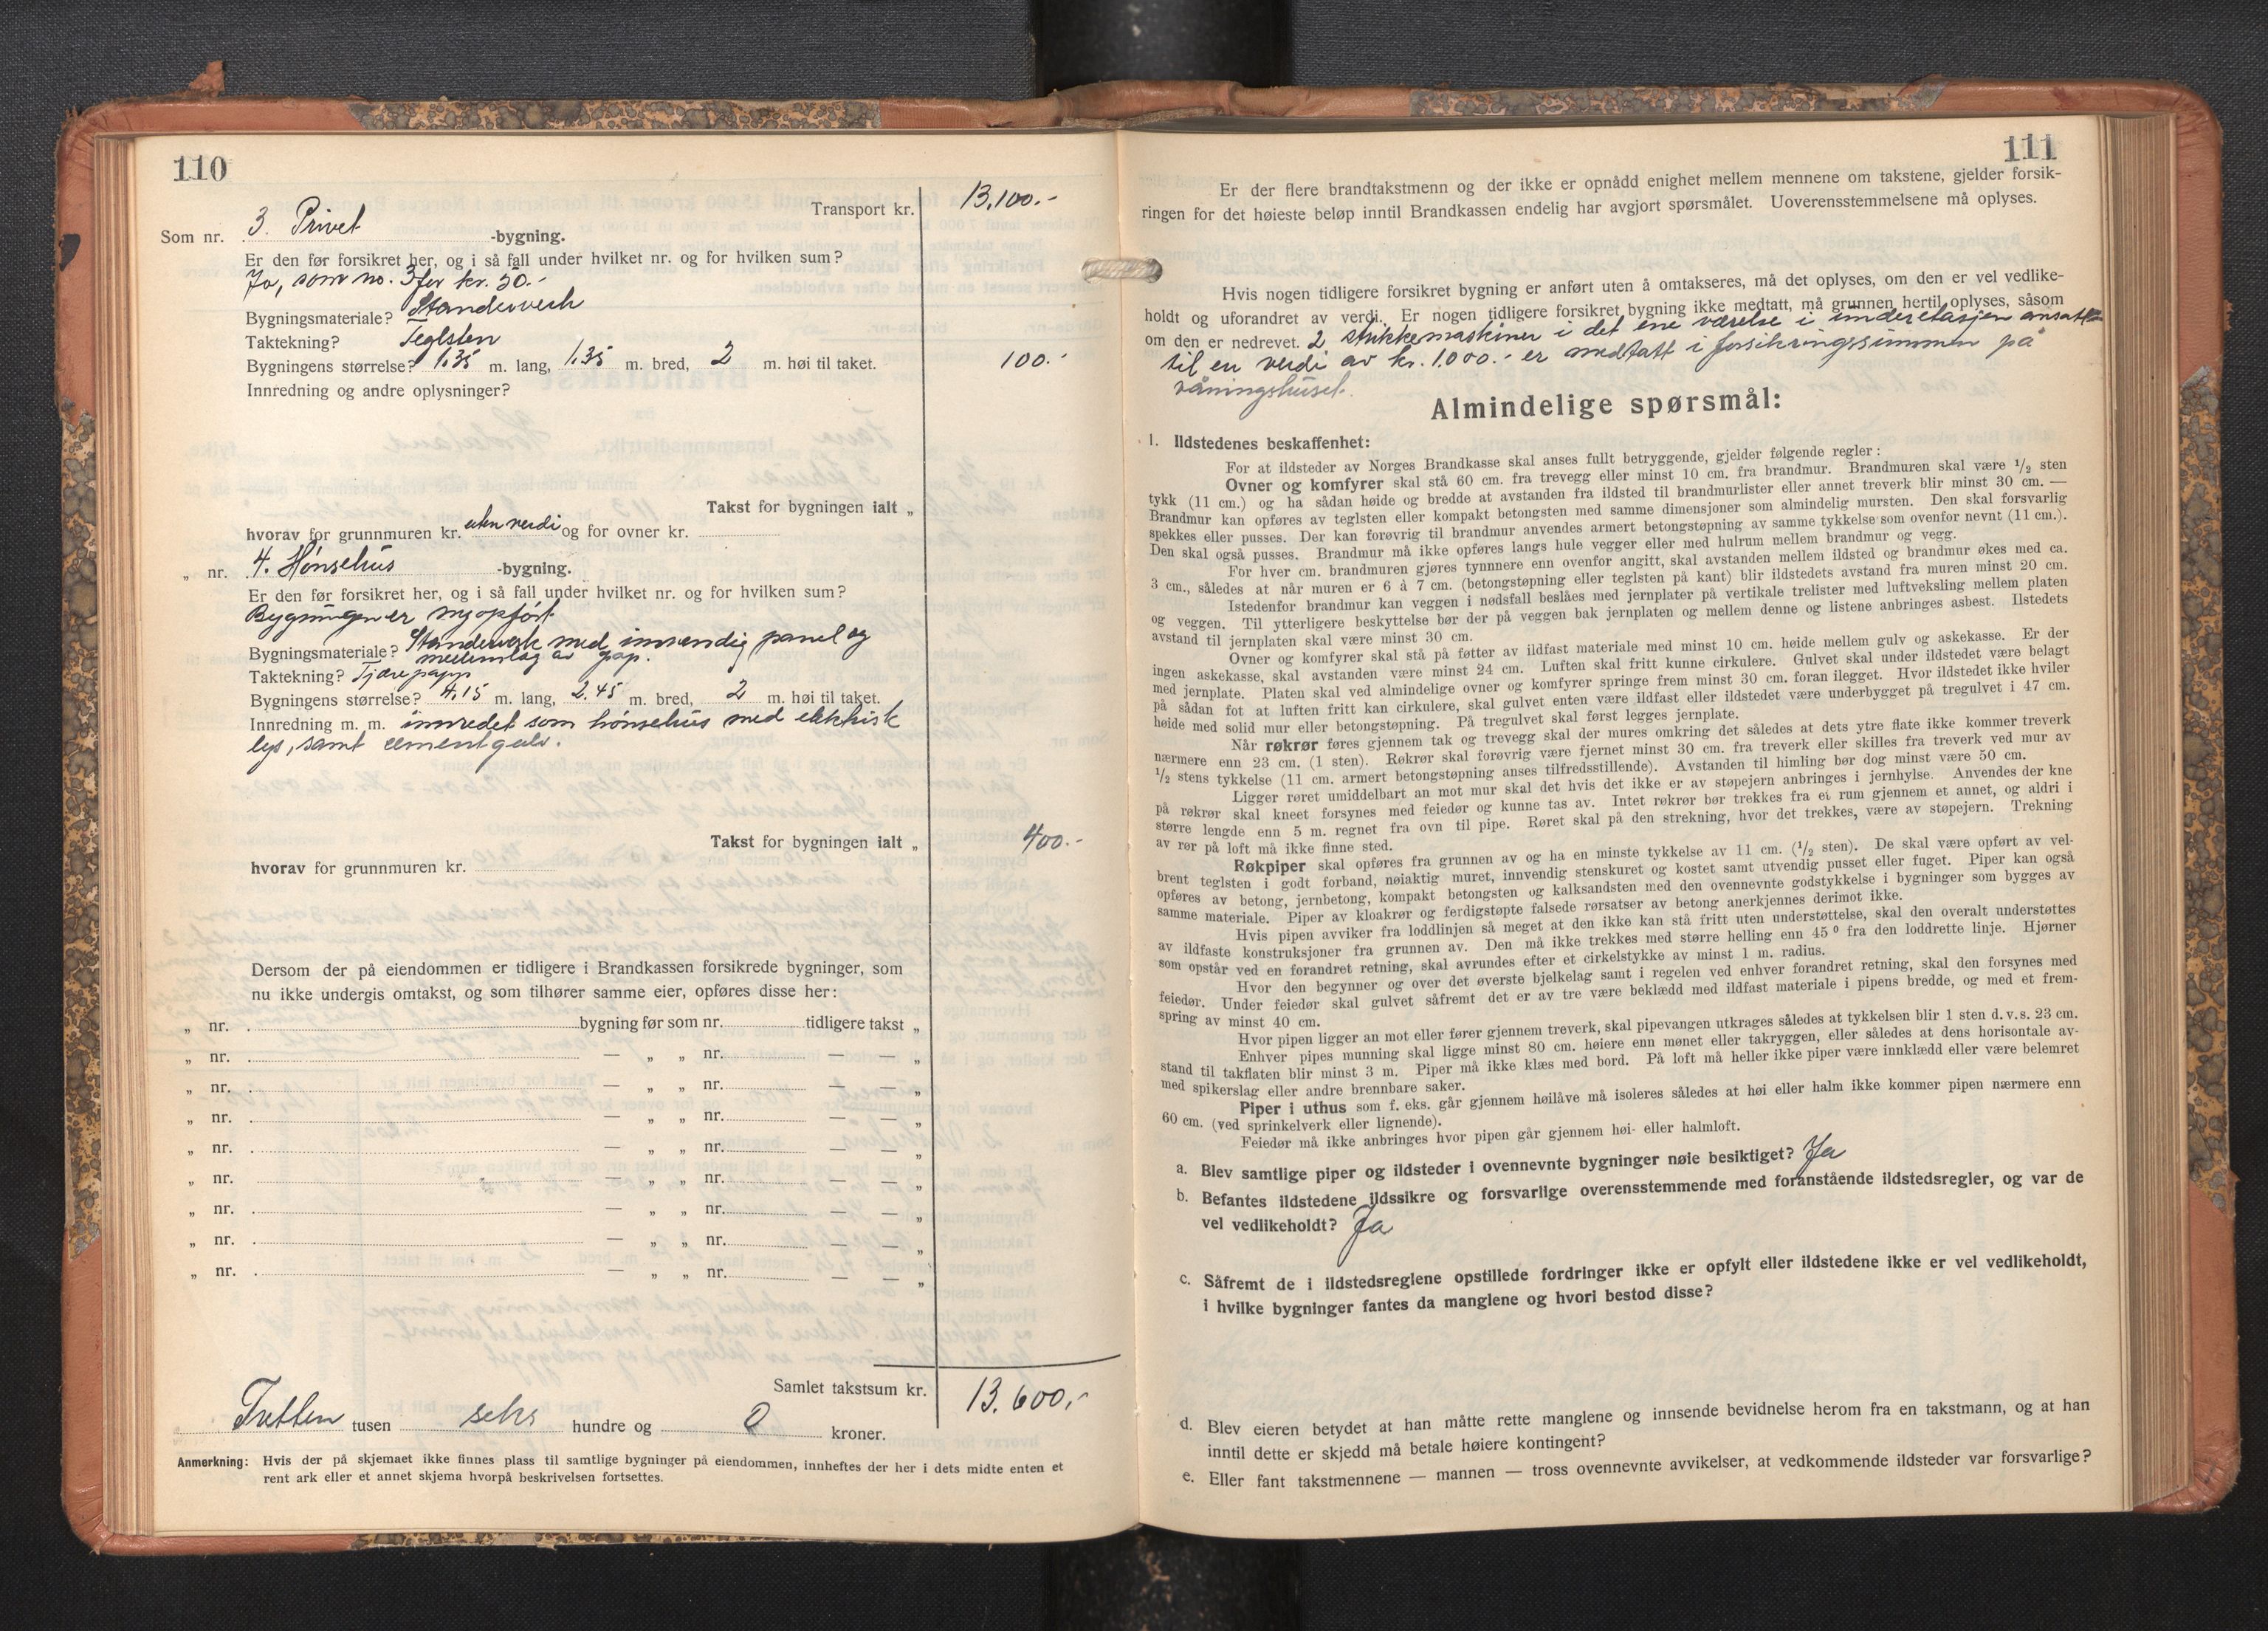 110
Transport kr. 13.100.-
Som nr. 3. Privet -bygning.
Er den før forsikret her, og i så fall under hvilket nr. og for hvilken sum?
Ja, som no. 3 for kr. 50.-
Bygningsmateriale? Standerverk
Taktekning? Teglsten
Bygningens størrelse? 1.35 m. lang, 1.35 m. bred, 2 m. høi til taket. 100.-
Innredning og andre oplysninger?
Takst for bygningen ialt „
hvorav for grunnmuren kr. uten verdi og for ovner kr.
„ nr. 4. Hønsehus -bygning.
Er den før forsikret her, og i så fall under hvilket nr. og for hvilken sum?
Bygningen er nyopført
Bygningsmateriale? Standerverk med innvendig panel og
mellemlag av pap.
Taktekning? Tjærepapp
Bygningens størrelse? 4.15 m. lang, 2.45 m. bred, 2 m. høi til taket.
Innredning m. m. innredet som hønsehus med elektrisk
lys, samt cementgulv.
Takst for bygningen ialt „ 400.-
hvorav for grunnmuren kr.
Dersom der på eiendommen er tidligere i Brandkassen forsikrede bygninger, som
nu ikke undergis omtakst, og som tilhører samme eier, opføres disse her:
„ nr. bygning før som nr. tidligere takst „
„ nr. — „ „ nr. — — „
„ nr. — „ „ nr. — — „
„ nr. — „ „ nr. — — „
„ nr. — „ „ nr. — — „
„ nr. — „ „ nr. — — „
„ nr. — „ „ nr. — — „
„ nr. — „ „ nr. — — „
„ nr. — „ „ nr. — — „
Samlet takstsum kr. 13.600.-
Tretten tusen seks hundre og 0 kroner.
Anmerkning: Hvis der på skjemaet ikke finnes plass til samtlige bygninger på eiendommen, innheftes der her i dets midte enten et
rent ark eller et annet skjema hvorpå beskrivelsen fortsettes.
111
Er der flere brandtakstmenn og der ikke er opnådd enighet mellem mennene om takstene, gjelder forsik-
ringen for det høieste beløp inntil Brandkassen endelig har avgjort spørsmålet. Uoverensstemmelsene må oplyses.
Hvis nogen tidligere forsikret bygning er anført uten å omtakseres, må det oplyses, om den er vel vedlike-
holdt og uforandret av verdi. Er nogen tidligere forsikret bygning ikke medtatt, må grunnen hertil oplyses, såsom
om den er nedrevet. 2 strikkemaskiner i det ene værelse i underetasjen ansatt
til en verdi av kr. 1.000.- er medtatt i forsikringssummen på
våningshuset.
Almindelige spørsmål:
1. Ildstedenes beskaffenhet:
For at ildsteder av Norges Brandkasse skal anses fullt betryggende, gjelder følgende regler:
Ovner og komfyrer skal stå 60 cm. fra trevegg eller minst 10 cm. fra brandmur. Brandmuren skal være 1/2 sten
tykk (11 cm.) og ha sådan høide og bredde at avstanden fra ildsted til brandmurlister eller annet treverk blir minst 30 cm. —
Brandmur kan opføres av teglsten eller kompakt betongsten med samme dimensjoner som almindelig mursten. Den skal forsvarlig
spekkes eller pusses. Der kan forøvrig til brandmur anvendes armert betongstøpning av samme tykkelse som ovenfor nevnt (11 cm.).
Den skal også pusses. Brandmur må ikke opføres langs hule vegger eller med hulrum mellem brandmur og vegg.
For hver cm. brandmuren gjøres tynnnere enn ovenfor angitt, skal avstanden mellem ildsted og brandmur økes med ca.
3 cm., således at når muren er 6 à 7 cm. (betongstøpning eller teglsten på kant) blir ildstedets avstand fra muren minst 20 cm.
Istedenfor brandmur kan veggen i nødsfall beslåes med jernplater på vertikale trelister med luftveksling mellem platen
og veggen. Til ytterligere beskyttelse bør der på veggen bak jernplaten og mellem denne og listene anbringes asbest. Ilstedets
avstand til jernplaten skal være minst 30 cm.
Ovner og komfyrer skal stå på føtter av ildfast materiale med minst 10 cm. høide mellem gulv og askekasse. Er der
ingen askekasse, skal avstanden være minst 24 cm. Luften skal fritt kunne cirkulere. Gulvet skal under ildstedet være belagt
med jernplate. Platen skal ved almindelige ovner og komfyrer springe frem minst 30 cm. foran ilegget. Hvor ildstedet ikke hviler
på sådan fot at luften fritt kan cirkulere, skal gulvet enten være ildfast eller ildstedet være underbygget på tregulvet i 47 cm.
høide med solid mur eller betongstøpning. På tregulvet skal først legges jernplate.
Når røkrør føres gjennem tak og trevegg skal der mures omkring det således at dets ytre flate ikke kommer treverk
nærmere enn 23 cm. (1 sten). Røkrør skal forøvrig være fjernet minst 30 cm. fra treverk eller skilles fra treverk ved mur av
1/2 stens tykkelse (11 cm. armert betongstøpning anses tilfredsstillende). Avstanden til himling bør dog minst være 50 cm.
Ligger røret umiddelbart an mot mur skal det hvis det ikke er av støpejern anbringes i jernhylse. Anvendes der kne
på røkrør skal kneet forsynes med feiedør og kunne tas av. Intet røkrør bør trekkes fra et rum gjennem et annet, og aldri i
større lengde enn 5 m. regnet fra ovn til pipe. Røret skal på den strekning, hvor det trekkes, være av støpejern. Trekning
av rør på loft må ikke finne sted.
Røkpiper skal opføres fra grunnen av og ha en minste tykkelse av 11 cm. (1/2 sten). De skal være opført av vel-
brent teglsten i godt forband, nøiaktig muret, innvendig stenskuret og kostet samt utvendig pusset eller fuget. Piper kan også
opføres av betong, jernbetong, kompakt betongsten og kalksandsten med den ovennevnte godstykkelse i bygninger som bygges av
samme materiale. Piper av kloakrør og ferdigstøpte falsede rørsatser av betong anerkjennes derimot ikke.
Hvis pipen avviker fra loddlinjen så meget at den ikke kan stå fritt uten understøttelse, skal den overalt understøttes
av ildfaste konstruksjoner fra grunnen av. Den må ikke trekkes med større helling enn 45° fra den loddrette linje. Hjørner
som opstår ved en forandret retning, skal avrundes efter et cirkelstykke av minst 1 m. radius.
Hvor den begynner og over det øverste bjelkelag samt i regelen ved enhver forandret retning, skal den forsynes med
feiedør. Under feiedør skal gulvet såfremt det er av tre være beklædd med ildfast materiale i pipens bredde, og med et frem-
spring av minst 40 cm.
Hvor pipen ligger an mot eller fører gjennem treverk, skal pipevangen utkrages således at tykkelsen blir 1 sten d. v. s. 23 cm.
Enhver pipes munning skal ligge minst 80 cm. høiere enn mønet eller takryggen, eller således at dens horisontale av-
stand til takflaten blir minst 3 m. Piper må ikke klæs med bord. På loft må heller ikke piper være innklædd eller være belemret
med spikerslag eller andre brennbare saker.
Piper i uthus som f. eks. går gjennem høilåve må isoleres således at høi eller halm ikke kommer pipen nærmere enn
60 cm. (ved sprinkelverk eller lignende).
Feiedør må ikke anbringes hvor pipen går gjennem høi- eller halmloft.
a. Blev samtlige piper og ildsteder i ovennevnte bygninger nøie besiktiget? Ja
b. Befantes ildstedene ildssikre og forsvarlige overensstemmende med foranstående ildstedsregler, og var de
vel vedlikeholdt? Ja
c. Såfremt de i ildstedsreglene opstillede fordringer ikke er opfylt eller ildstedene ikke er vel vedlikeholdt,
i hvilke bygninger fantes da manglene og hvori bestod disse?
d. Blev eieren betydet at han måtte rette manglene og innsende bevidnelse herom fra en takstmann, og at han
inntil dette er skjedd må betale høiere kontingent?
e. Eller fant takstmennene — mannen — tross ovennevnte avvikelser, at vedkommende ildsteder var forsvarlige?